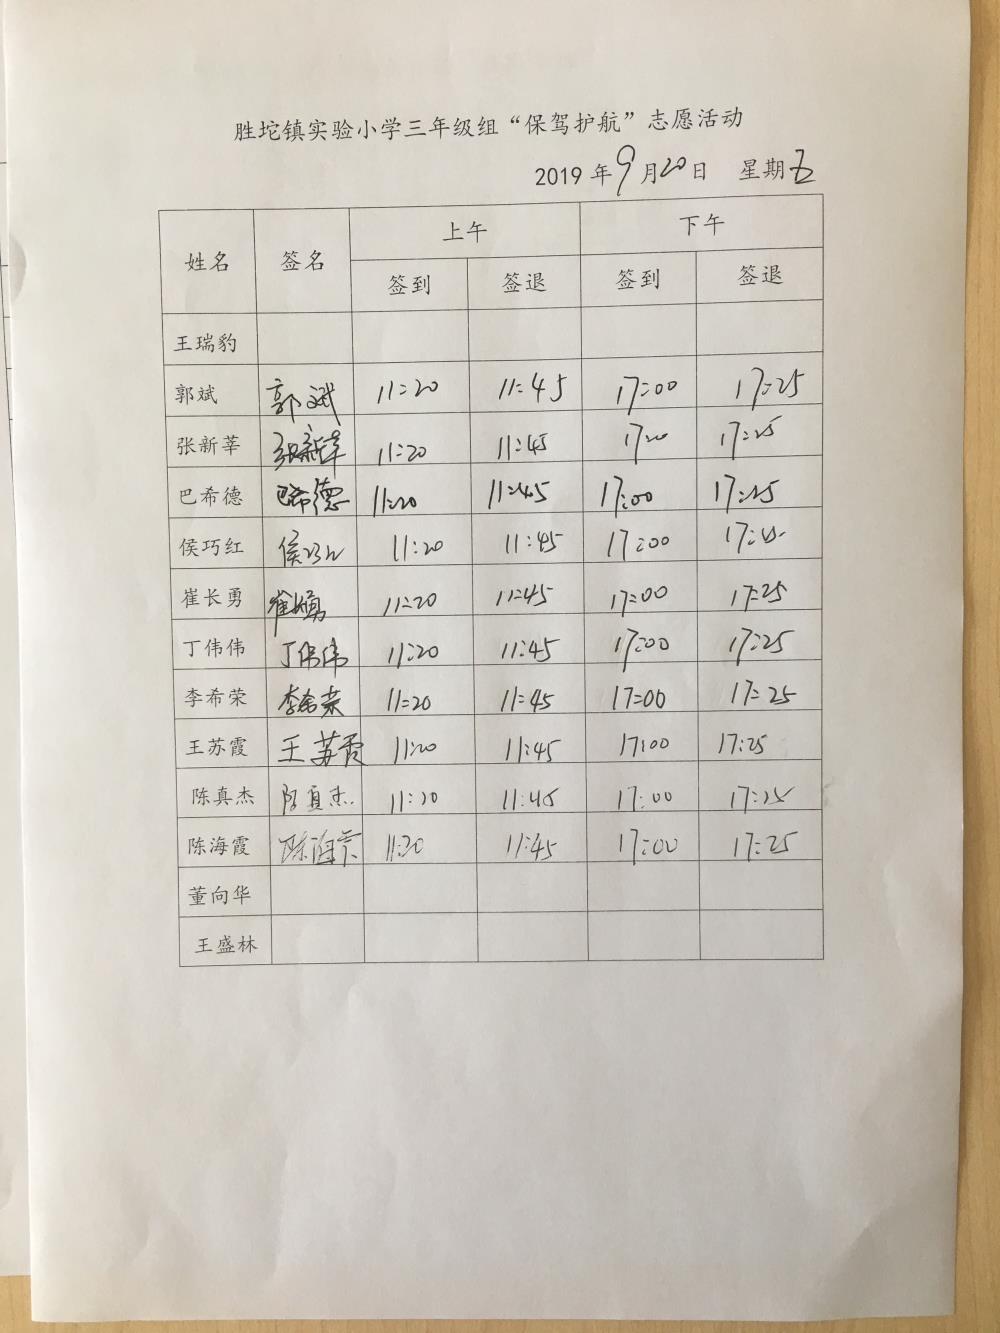 胜坨镇实验小学三年级组“保驾护航”志愿活动
2019 年 9 月 20 日 星期五
姓名 签名 上午 下午
签到 签退 签到 签退
王瑞豹
郭斌 郭斌 11:20 11:45 17:00 17:25
张新莘 张新莘 11:20 11:45 17:25
巴希德 巴希德 11:20 11:45 17:00 17:25
侯巧红 侯巧红 11:20 11:45 17:00
崔长勇 崔长勇 11:20 11:45 17:00 17:25
丁伟伟 丁伟伟 11:20 11:45 17:00 17:25
李希荣 李希荣 11:20 11:45 17:00 17:25
王苏霞 王苏霞 11:20 11:45 17:00 17:25
陈真杰 陈真杰 11:20 11:45 17:00 17:25
陈海霞 陈海霞 11:20 11:45 17:00 17:25
董向华
王盛林